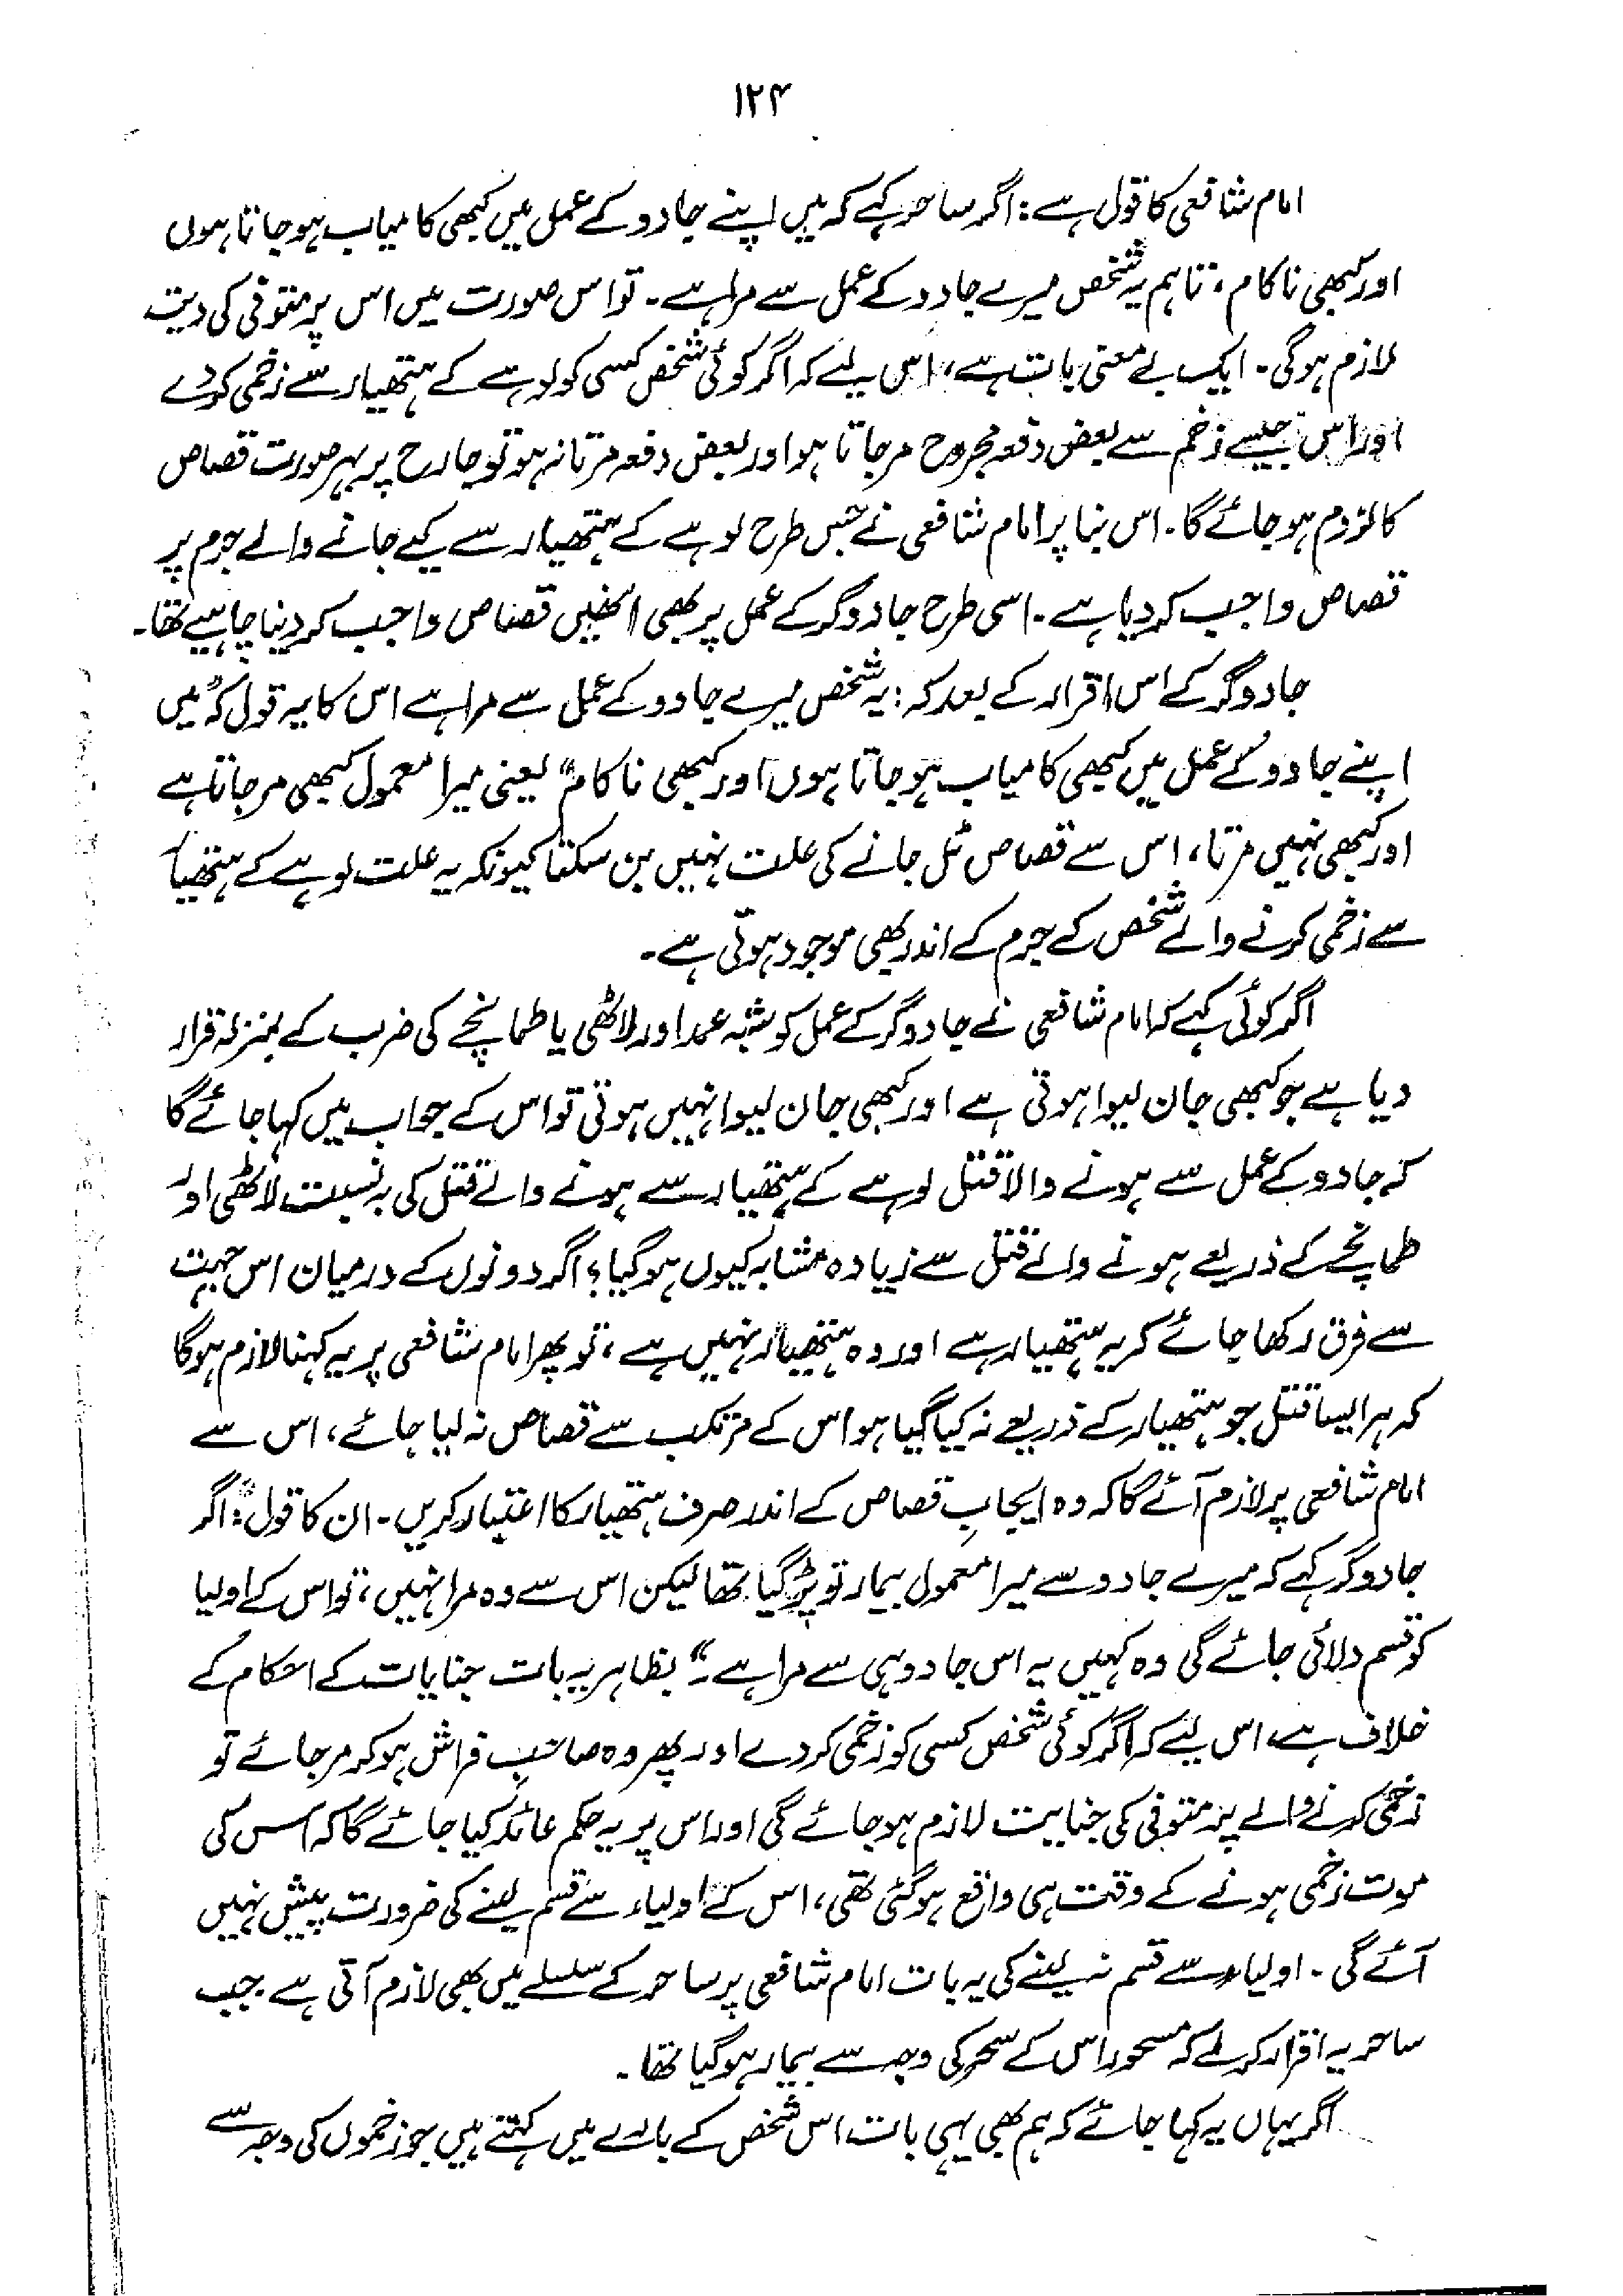 ۱۲۴
امام شافعی کا قول ہے: اگر ساحر کہے کہ میں اپنے جادو کے عمل میں کبھی کامیاب ہوجاتا ہوں
اور کبھی ناکام، تاہم یہ شخص میرے جادو کے عمل سے مرا ہے۔ تو اس صورت میں اس پر متوفی کی دیت
لازم ہوگی۔ ایک بے معنی بات ہے، اس لیے کہ اگر کوئی شخص کسی کو لوہے کے ہتھیار سے زخمی کردے
اور اس جیسے زخم سے بعض دفعہ مجروح مرجاتا ہو اور بعض دفعہ مرتا نہ ہو تو جارح پر بہرصورت قصاص
کا لزوم ہوجائے گا۔ اس بنا پر امام شافعی نے جس طرح لوہے کے ہتھیار سے کیے جانے والے جرم پر
قصاص واجب کردیا ہے۔ اسی طرح جادوگر کے عمل پر بھی انھیں قصاص واجب کردینا چاہیے تھا۔
جادوگر کے اس اقرار کے بعد کہ: یہ شخص میرے جادو کے عمل سے مرا ہے اس کا یہ قول کہ "میں
اپنے جادو کے عمل میں کبھی کامیاب ہوجاتا ہوں اور کبھی ناکام" یعنی میرا معمول کبھی مرجاتا ہے
اور کبھی نہیں مرتا، اس سے قصاص ٹل جانے کی علت نہیں بن سکتا کیونکہ یہ علت لوہے کے ہتھیار
سے زخمی کرنے والے شخص کے جرم کے اندر بھی موجود ہوتی ہے۔
اگر کوئی کہے کہ امام شافعی نے جادوگر کے عمل کو شبہ عمد اور لاٹھی یا طمانچے کی ضرب کے بمنزلہ قرار
دیا ہے جو کبھی جان لیوا ہوتی ہے اور کبھی جان لیوا نہیں ہوتی تو اس کے جواب میں کہا جائے گا
کہ جادو کے عمل سے ہونے والا قتل لوہے کے ہتھیار سے ہونے والے قتل کی بہ نسبت لاٹھی اور
طمانچے کے ذریعے ہونے والے قتل سے زیادہ مشابہ کیوں ہوگیا؟ اگر دونوں کے درمیان اس جہت
سے فرق رکھا جائے کہ یہ ہتھیار ہے اور وہ ہتھیار نہیں ہے، تو پھر امام شافعی پر یہ کہنا لازم ہوگا
کہ ہر ایسا قتل جو ہتھیار کے ذریعے نہ کیا گیا ہو اس کے مرتکب سے قصاص نہ لیا جائے، اس سے
امام شافعی پر لازم آئے گا کہ وہ ایجابِ قصاص کے اندر صرف ہتھیار کا اعتبار کریں۔ ان کا قول: "اگر
جادوگر کہے کہ میرے جادو سے میرا معمول بیمار تو پڑ گیا تھا لیکن اس سے وہ مرا نہیں، تو اس کے اولیا
کو قسم دلائی جائے گی وہ کہیں یہ اس جادو ہی سے مرا ہے۔" بظاہر یہ بات جنایات کے احکام کے
خلاف ہے، اس لیے کہ اگر کوئی شخص کسی کو زخمی کردے اور پھر وہ صاحبِ فراش ہوکر مرجائے تو
زخمی کرنے والے پر متوفی کی جنایت لازم ہوجائے گی اور اس پر یہ حکم عائد کیا جائے گا کہ اس کی
موت زخمی ہونے کے وقت ہی واقع ہوگئی تھی، اس کے اولیاء سے قسم لینے کی ضرورت پیش نہیں
آئے گی۔ اولیاء سے قسم نہ لینے کی یہ بات امام شافعی پر ساحر کے سلسلے میں بھی لازم آتی ہے جب
ساحر یہ اقرار کرلے کہ مسحور اس کے سحر کی وجہ سے بیمار ہوگیا تھا۔
اگر یہاں یہ کہا جائے کہ ہم بھی یہی بات اس شخص کے بارے میں کہتے ہیں جو زخموں کی وجہ سے